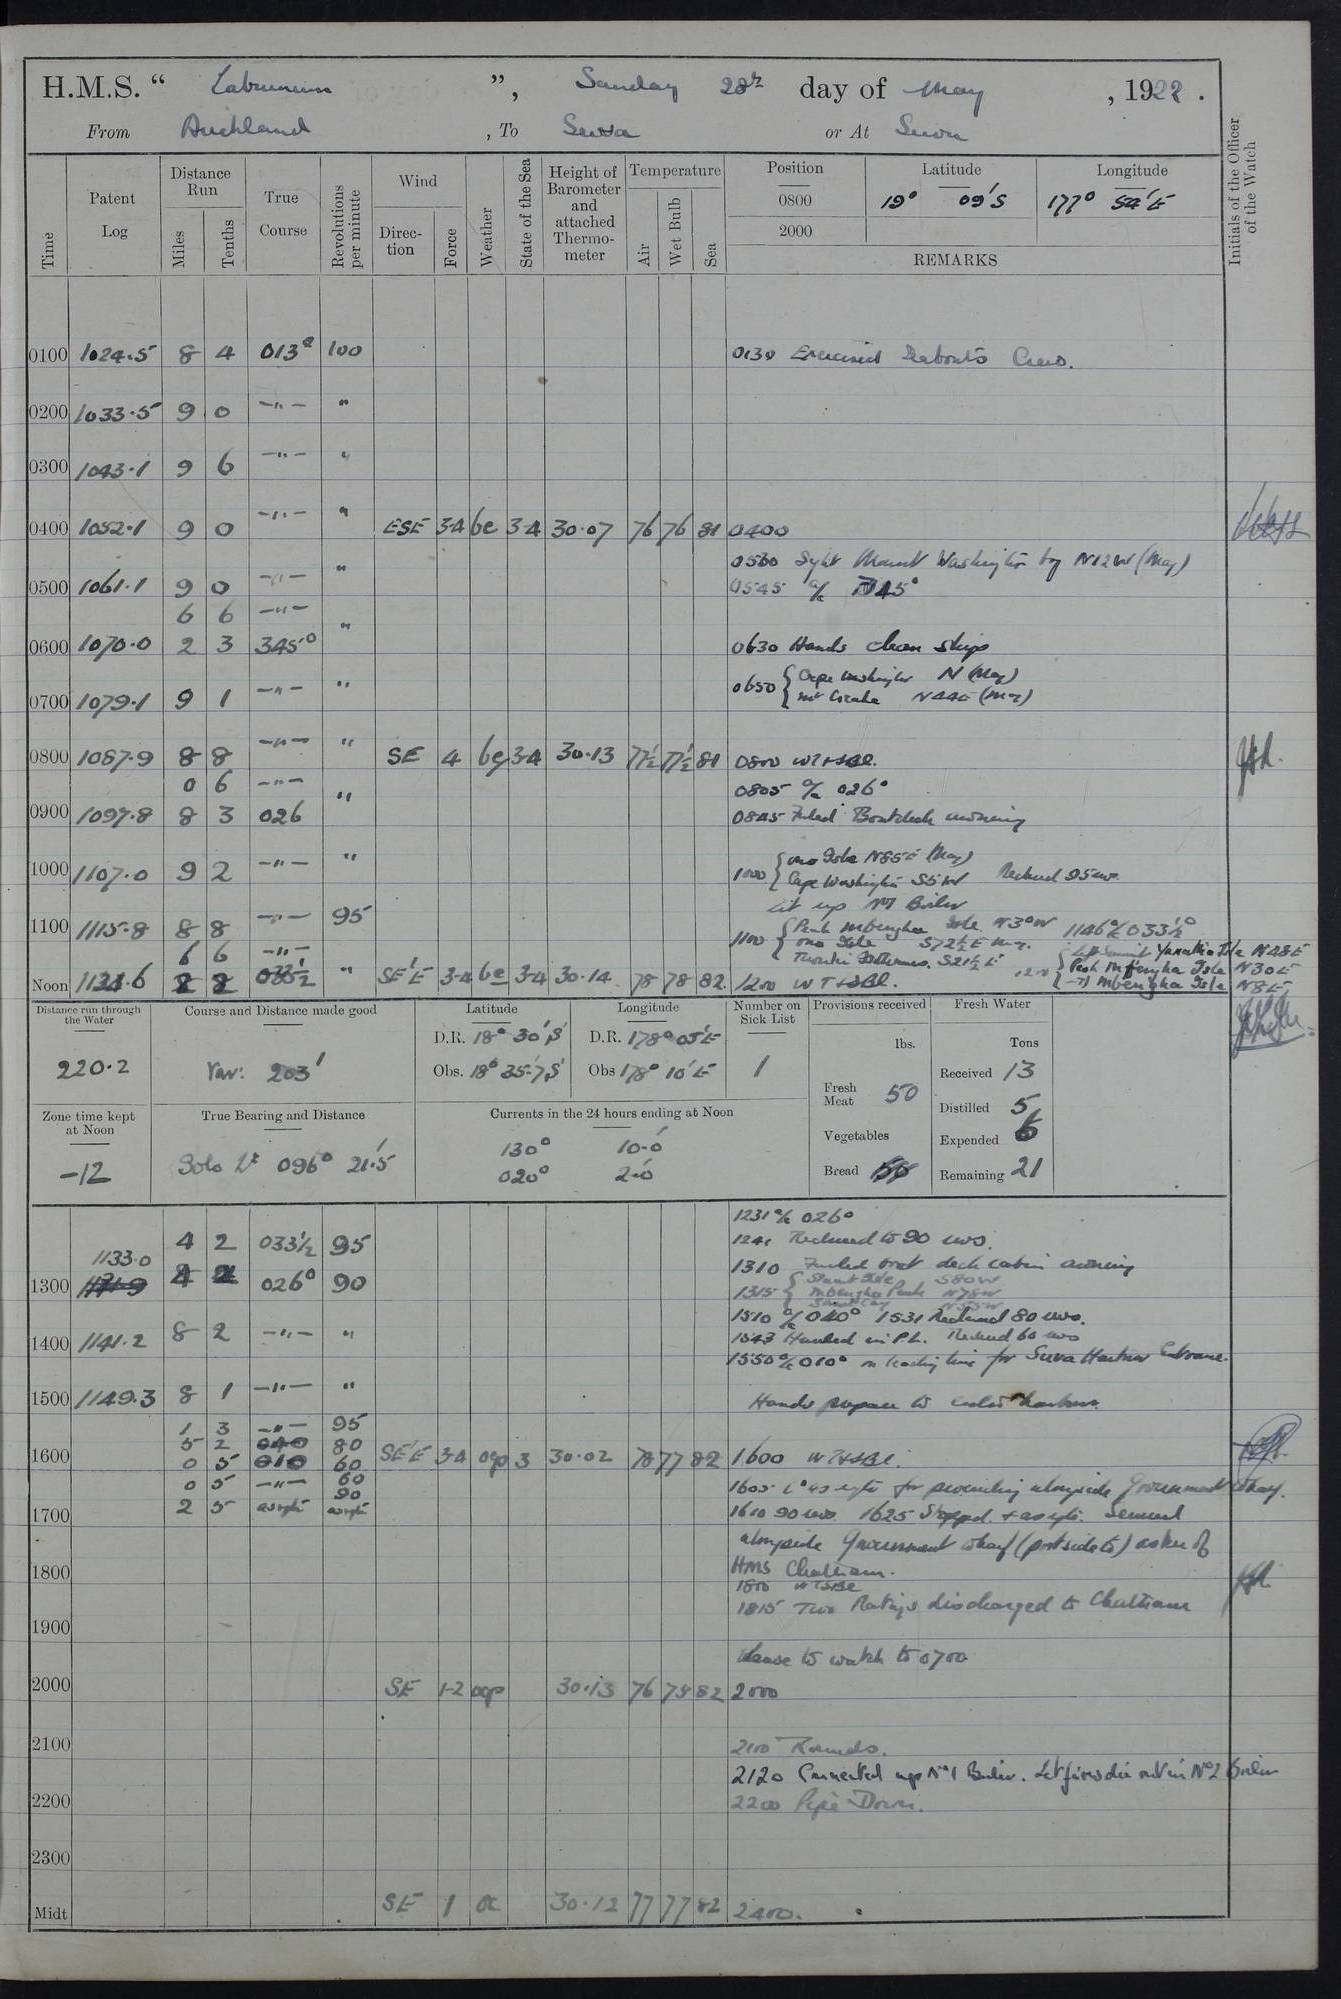 H.M.S. " Laburnum ", Sunday 28th day of May , 1922 .
From Auckland , To Suva or At Suva
Time Patent Log Distance Run Miles Tenths True Course Revolutions per minute Wind Direction Force Weather State of the Sea Height of Barometer and attached Thermometer Temperature Air Wet Bulb Sea
Position Latitude Longitude
0800 19° 09'S 177° 54'E
2000
REMARKS
Initials of the Officer of the Watch
0100 1024.5 8 4 013° 100 0130 Exercised Seaboat's Crew.
0200 1033.5 9 0 —"— "
0300 1043.1 9 6 —"— "
0400 1052.1 9 0 —"— " ESE 3-4 bc 3-4 30.07 76 76 81 0400
0530 Sight Mount Washington by N12W (Mag)
0500 1061.1 9 0 —"— " 0545 a/c 345°
6 6 —"—
0600 1070.0 2 3 345° " 0630 Hands clean ship
0650 { Cape Washington N (Mag)
0700 1079.1 9 1 —"— " N44E (Mag)
0800 1087.9 8 8 —"— " SE 4 bc 3-4 30.13 77½ 77½ 81 0800
0 6 —"— 0805 a/c 026°
0900 1097.8 8 3 026 " 0845 Furled Boatdeck awning
1000 1107.0 9 2 —"— " 1000 { Ono Isle N85E (Mag)
Cape Washington S5W Reduced 95 revs.
Lit up No 1 Boiler
1100 1115.8 8 8 —"— 95 1100 { Peak Mbengha Isle N3°W 1146 a/c 033½°
Ono Isle S72½E Mag.
6 6 —"— S21½E
Yanutha Isle N48E
Peak Mbengha Isle N30E
Mbengha Isle N8E
Noon 1131.6 2 2 033½ " SE'E 3-4 bc 3-4 30.14 78 78 82 1200
Distance run through the Water Course and Distance made good Latitude Longitude Number on Sick List Provisions received Fresh Water
D.R. 18° 30'S D.R. 178° 05'E lbs. Tons
220.2 Var: 203' Obs. 18° 35.7'S Obs 178° 10'E 1
Fresh Meat 50 Received 13
Zone time kept at Noon True Bearing and Distance Currents in the 24 hours ending at Noon
Distilled 5
Vegetables Expended 6
-12 Solo Lt 096° 21.5' 130° 10.0'
020° 2.0' Bread Remaining 21
1231 a/c 026°
4 2 033½ 95 1241 Reduced to 90 revs.
1133.0
1300 4 2 026° 90 1310 Furled boat deck cabin awning
1315 { Isle S80W
Mbengha Peak N78W
N55W
1510 a/c 040° 1531 Reduced 80 revs.
1400 1141.2 8 2 —"— " 1543 Hauled in P.L. Reduced 60 revs
1550 a/c 010° on leading line for Suva Harbour Entrance.
1500 1149.3 8 1 —"— " Hands prepare to enter harbour.
1 3 —"— 95
5 2 040 80
1600 0 5 010 60 SE'E 3-4 ocp 3 30.02 78 77 82 1600
0 5 —"— 60 1605 Co as reqte for proceeding alongside Government Wharf.
90
1700 2 5 as reqte as reqte 1610 90 revs 1625 Stopped. + as reqte. Secured
alongside Government Wharf (port side to) astern of
1800 HMS Chatham.
1800
1815 Two Ratings discharged to Chatham
1900
Leave to watch to 0700
2000 SE 1-2 ocp 30.13 76 75 82 2000
2100 2100 Rounds.
2120 Connected up No 1 Boiler. Let fires die out in No 2 Boiler
2200 2200 Pipe Down.
2300
Midt SE 1 oc 30.12 77 77 82 2400.